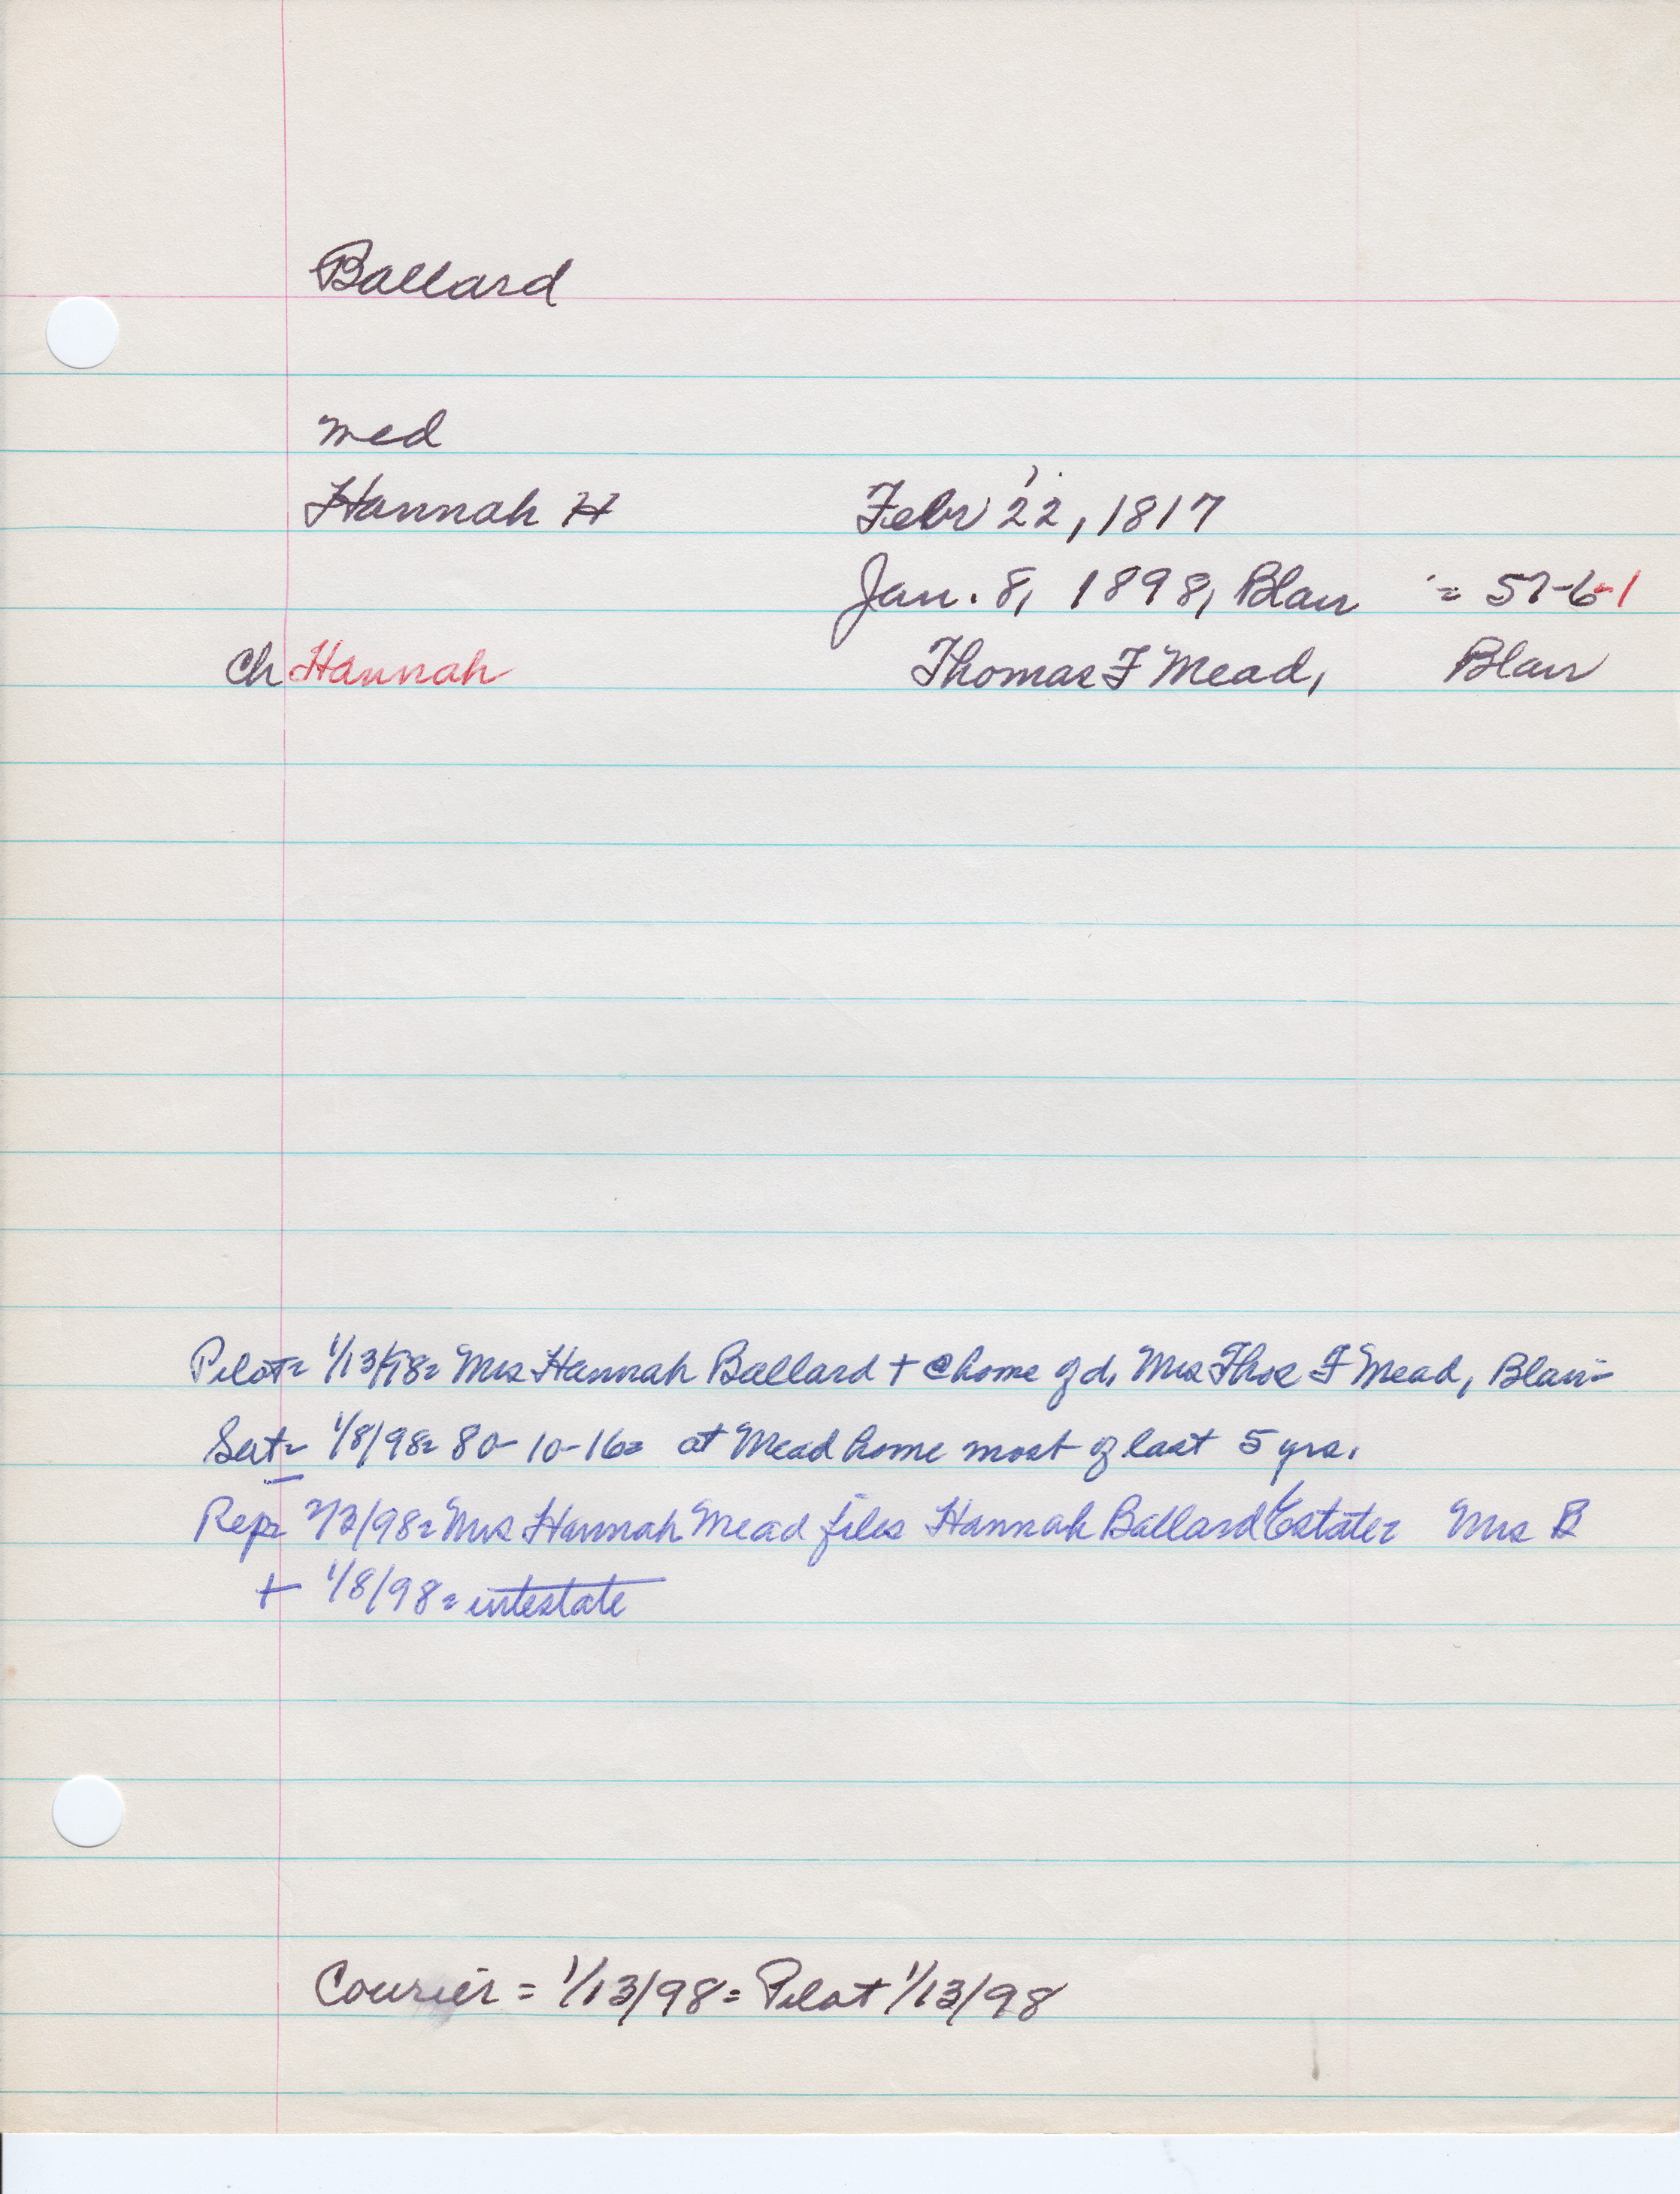 Ballard
med
Hannah H Febr 22, 1817
Jan. 8, 1898, Blair = 57-6-1
Ch Hannah Thomas F Mead, Blair
Pilot= 1/13/98= Mrs Hannah Ballard + @ home of d. Mrs Thos F Mead, Blair-
Sat= 1/8/98= 80-10-16= at Mead home most of last 5 yrs.
Rep= 2/3/98= Mrs Hannah Mead files Hannah Ballard Estate= Mrs B
+ 1/8/98= intestate
Courier = 1/13/98= Pilot 1/13/98